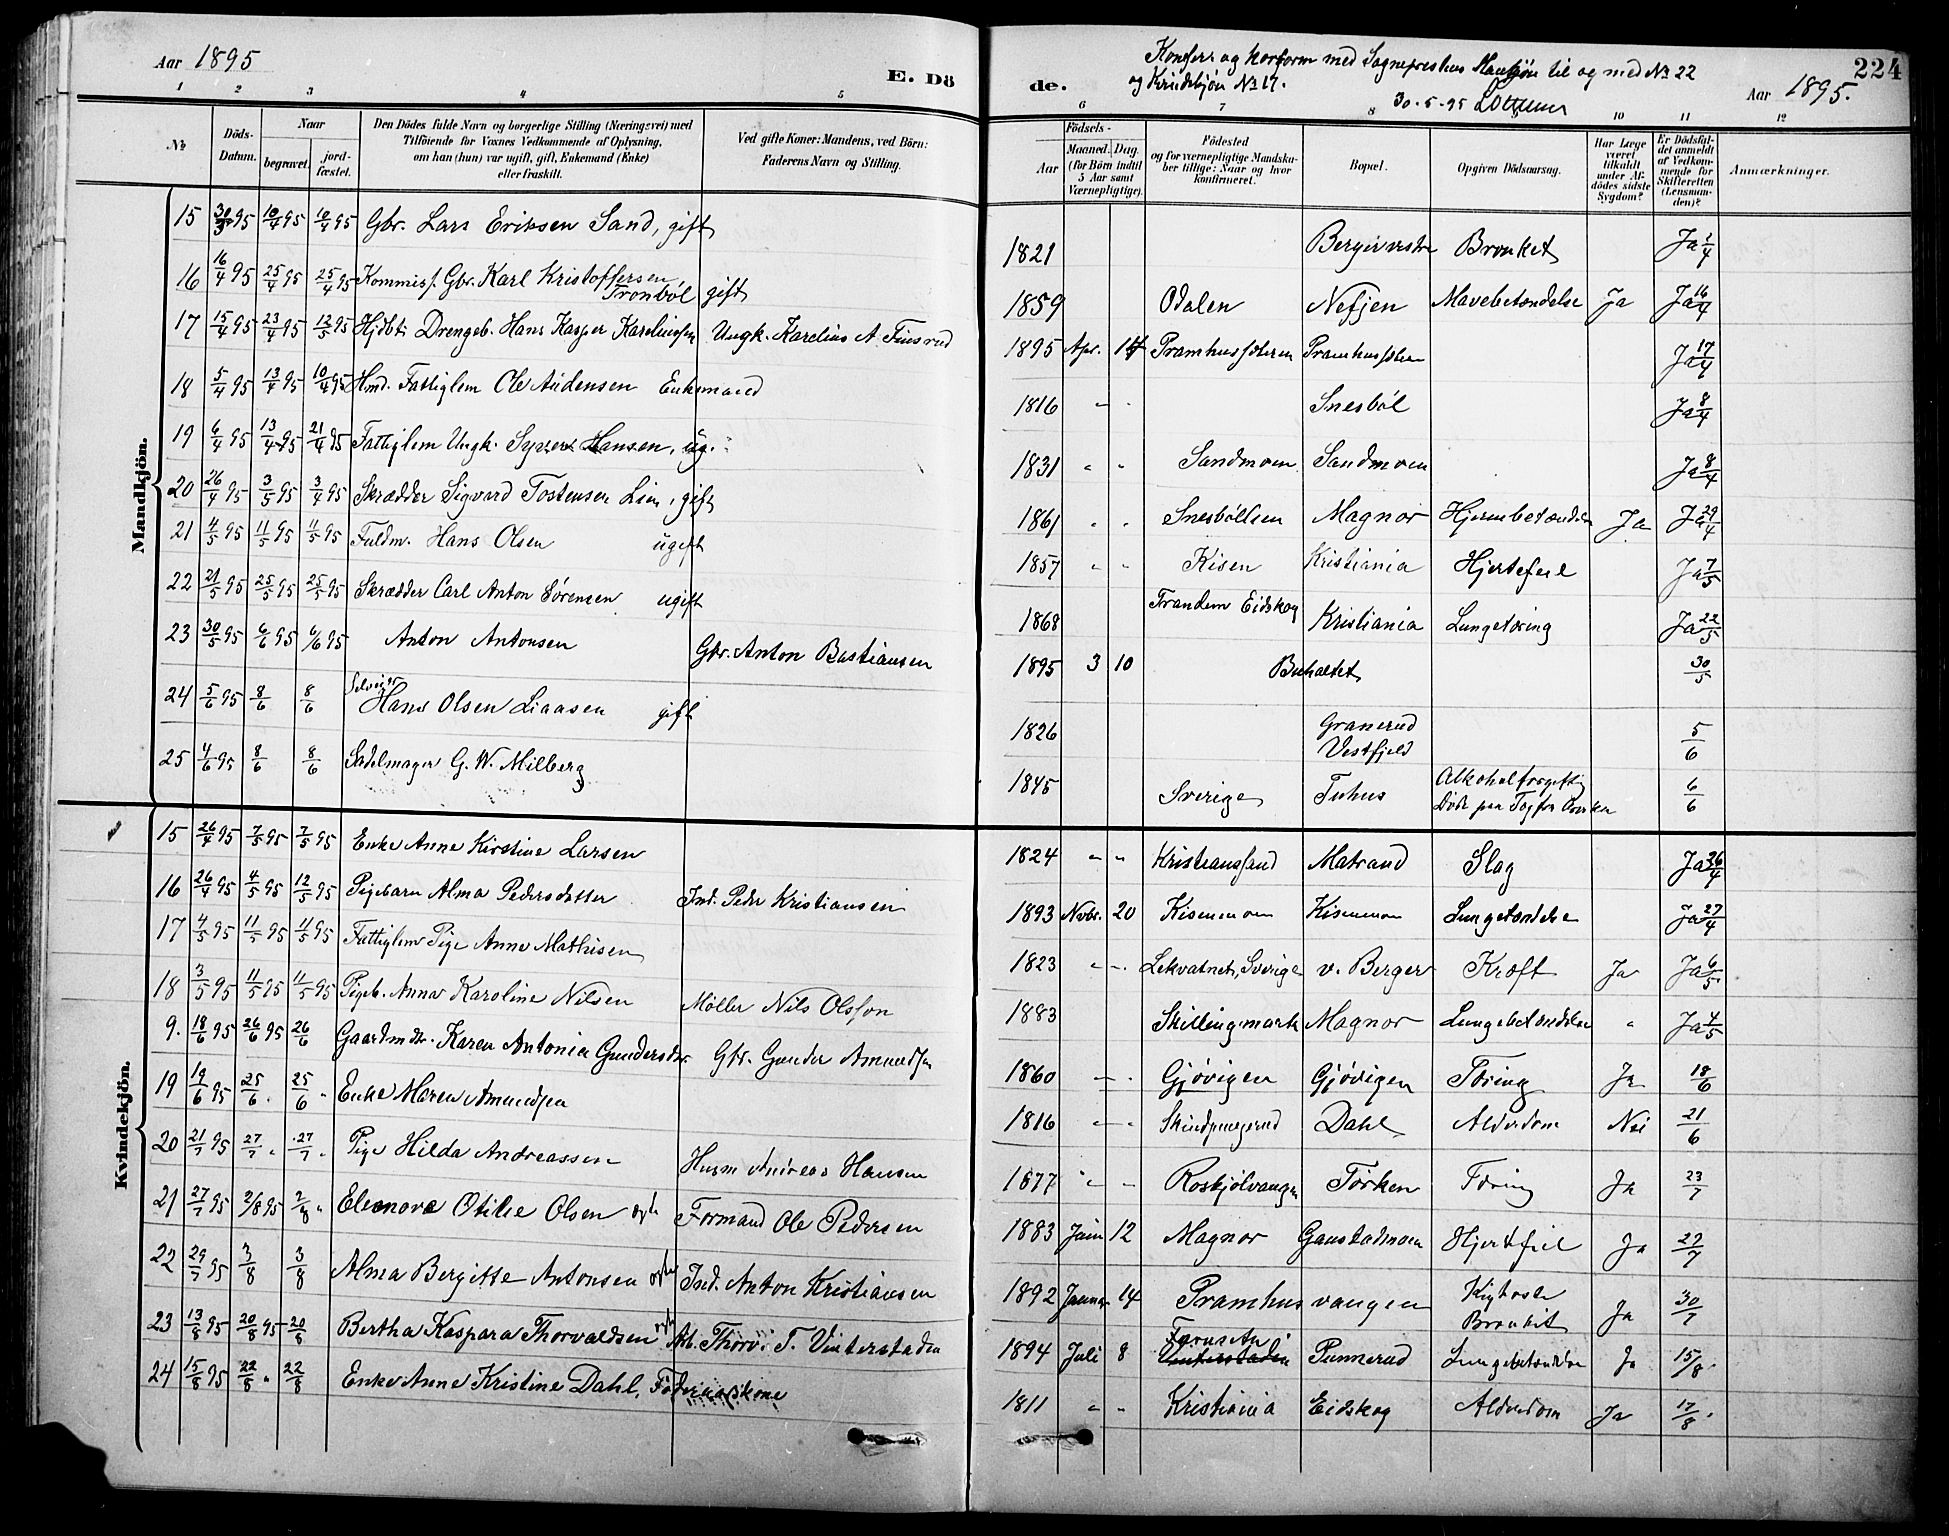 Aar 1895
E. Dö
de.
og med No 22
og No 17.
30-5-95
224
Aar 1895.
1 2 3 4 5 6 7 8 10 11 12
No
Döds-Datum.
Naar
begravet.
jord-fæstet.
Den Dödes fulde Navn og borgerlige Stilling (Næringsvei) med
Tilföiende for Voxnes Vedkommende af Oplysning,
om han (hun) var ugift, gift, Enkemand (Enke)
eller fraskilt.
Ved gifte Koner: Mandens, ved Börn:
Faderens Navn og Stilling.
Födsels-
Aar
Maaned. Dag.
(for Börn indtil
5 Aar samt
Værnepligtige).
Födested
og for værnepligtige Mandska-
ber tillige: Naar og hvor
konfirmeret.
Bopæl.
Opgiven Dödsaarsag.
Har Læge
været
tilkaldt
under Af-
dödes sidste
Sygdom?
Er Dödsfal-
det anmeldt
af Vedkom-
mende for
Skifteretten
(Lensman-
den)?
Anmærkninger.
Mandkjön.
15 30/3 95 10/4 95 10/4 95 Gbr. Lars Eriksen Sand, gift 1821 Bronket Ja 2/4
16 16/4 95 25/4 95 25/4 95 Gbr. Karl Kristoffersen Tronböl gift 1859 Odalen Mavebetændelse Ja Ja 16/4
17 15/4 95 23/4 95 12/5 95 Drengeb. Hans Kasper Ungk. Karelius A. Finsrud 1895 Apr. 14 Ja 17/4
18 5/4 95 13/4 95 10/4 95 Hmd. Fattiglem Ole Audensen Enkemand 1816 Snesböl Ja 8/4
19 6/4 95 13/4 95 21/4 95 Fattiglem Ungk. Syver Hansen, ug. 1831 Sandmoen Sandmoen Ja 8/4
20 26/4 95 3/5 95 3/4 95 Skrædder Sigvard Tostensen Lien, gift 1861 Magnor Ja Ja 29/4
21 4/5 95 11/5 95 11/5 95 Fuldm. Hans Olsen ugift 1857 Kisen Kristiania Hjertefeil Ja 7/5
22 21/5 95 25/5 95 25/5 95 Skrædder Carl Anton Sörensen ugift 1868 Trandem Eidskog Kristiania Lungetæring Ja 22/5
23 30/5 95 6/6 95 6/6 95 Anton Antonsen Gbr. Anton Bastiansen 1895 3 10 30/5
24 5/6 95 8/6 8/6 Hans Olsen Liaasen gift 1826 Granerud Vestfjeld 5/6
25 4/6 95 8/6 8/6 Sadelmager G. W. Milberg 1845 Sverige Tuhus 6/6
Kvindekjön.
15 26/4 95 7/5 95 7/5 95 Enke Anne Kirstine Larsen 1824 Kristianssand Matrand Slag Ja 26/4
16 26/4 95 4/5 95 12/5 95 Pigebarn Alma Pedersdatter Ind. Peder Kristiansen 1893 Novbr. 20 Kisenmoen Kisenmoen Ja 27/4
17 4/5 95 11/5 95 11/5 95 Fattiglem Pige Anne Mathisen 1823 Lekvatnet, Sverige v. Berger Kræft Ja Ja 6/5
18 3/5 95 11/5 95 11/5 95 Pigeb. Anna Karoline Nilsen Möller Nils Olsson 1883 Skillingmark Magnor Lungebetændelse " Ja 4/5
9. 18/6 95 26/6 95 26/6 Karen Antonia Gundersdtr. Gbr. Gunder Amundsen 1860 Gjövigen Gjövigen Tæring Ja 18/6
19 19/6 95 25/6 " 25/6 " Enke Maren Amundsen 1816 Dahl Alderdom Nei 21/6
20 21/7 95 27/7 " 27/7 " Pige Hilda Andreassen Husm Andreas Hansen 1877 Törken Tæring Ja 23/7
21 27/7 95 2/8 95 2/8 " Eleonora Otilie Olsen Formand Ole Pedersen 1883 Juni 12 Magnor Gaustadmoen Hjertfeil Ja 27/7
22 29/7 95 3/8 3/8 Alma Bergitte Antonsen Ind. Anton Kristiansen 1892 Januar 14 Pramhusvangen Bronkit Ja 30/7
23 13/8 95 20/8 95 20/8 Bertha Kaspara Thorvaldsen T. Vinterstaden 1894 Juli 8 Punnerud Lungebetændelse Ja 15/8
24 15/8 95 22/8 " 22/8 Enke Anne Kristine Dahl, 1811 Kristiania Eidskog Alderdom Ja 17/8